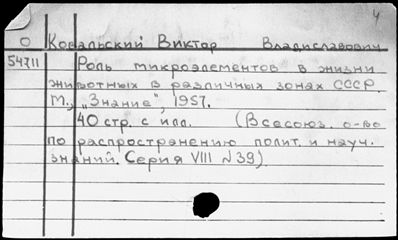 4
О Ковальский Виктор Владиславович
54711 Роль микроэлементов в жизни
животных в различных зонах СССР
М., „Знание", 1957.
40 стр. с илл. (Всесоюз. о-во
по распространению полит. и науч.
знаний. Серия VIII №39).